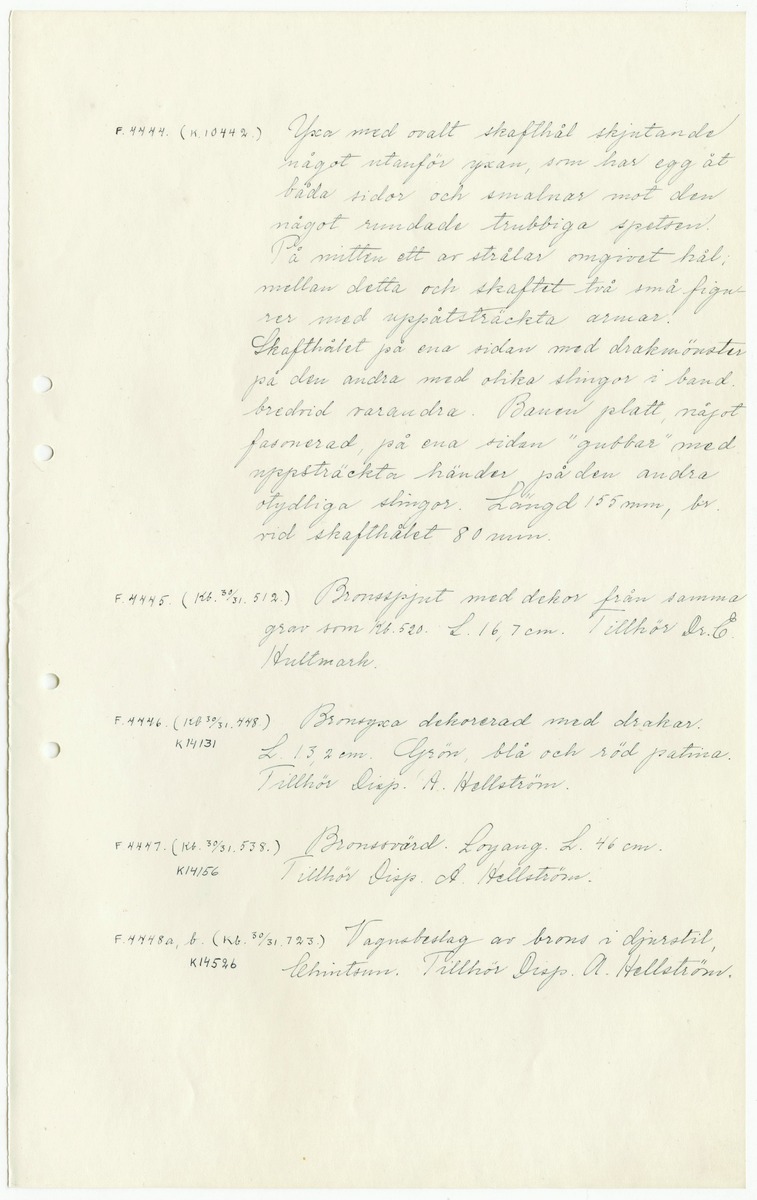 F.4444. (K.10442.) Yxa med ovalt skafthål skjutande
något utanför yxan, som har egg åt
båda sidor och smalnar mot den
något rundade trubbiga spetsen.
På mitten ett av strålar omgivet hål;
mellan detta och skaftet två små figu-
rer med uppåtsträckta armar.
Skafthålet på ena sidan med drakmönster
på den andra med olika slingor i band.
bredvid varandra. Banen platt, något
fasonerad, på ena sidan "gubbar" med
uppsträckta händer på den andra
otydliga slingor. Längd 155 mm, br.
vid skafthålet 80 mm.
F.4445. (Kb. 30/31. 512.) Bronsspjut med dekor från samma
grav som Kb. 520. L. 16,7 cm. Tillhör Dr. E.
Hultmark.
F.4446. (Kb 30/31. 448) Bronsyxa dekorerad med drakar.
K14131 L. 13,2 cm. Grön, blå och röd patina.
Tillhör Disp. A. Hellström.
F.4447. (Kb. 30/31. 538.) Bronssvärd. Loyang. L. 46 cm.
K14156 Tillhör Disp. A. Hellström.
F.4448a, b. (Kb. 30/31. 723.) Vagnsbeslag av brons i djurstil,
K14526 Chintsun. Tillhör Disp. A. Hellström.